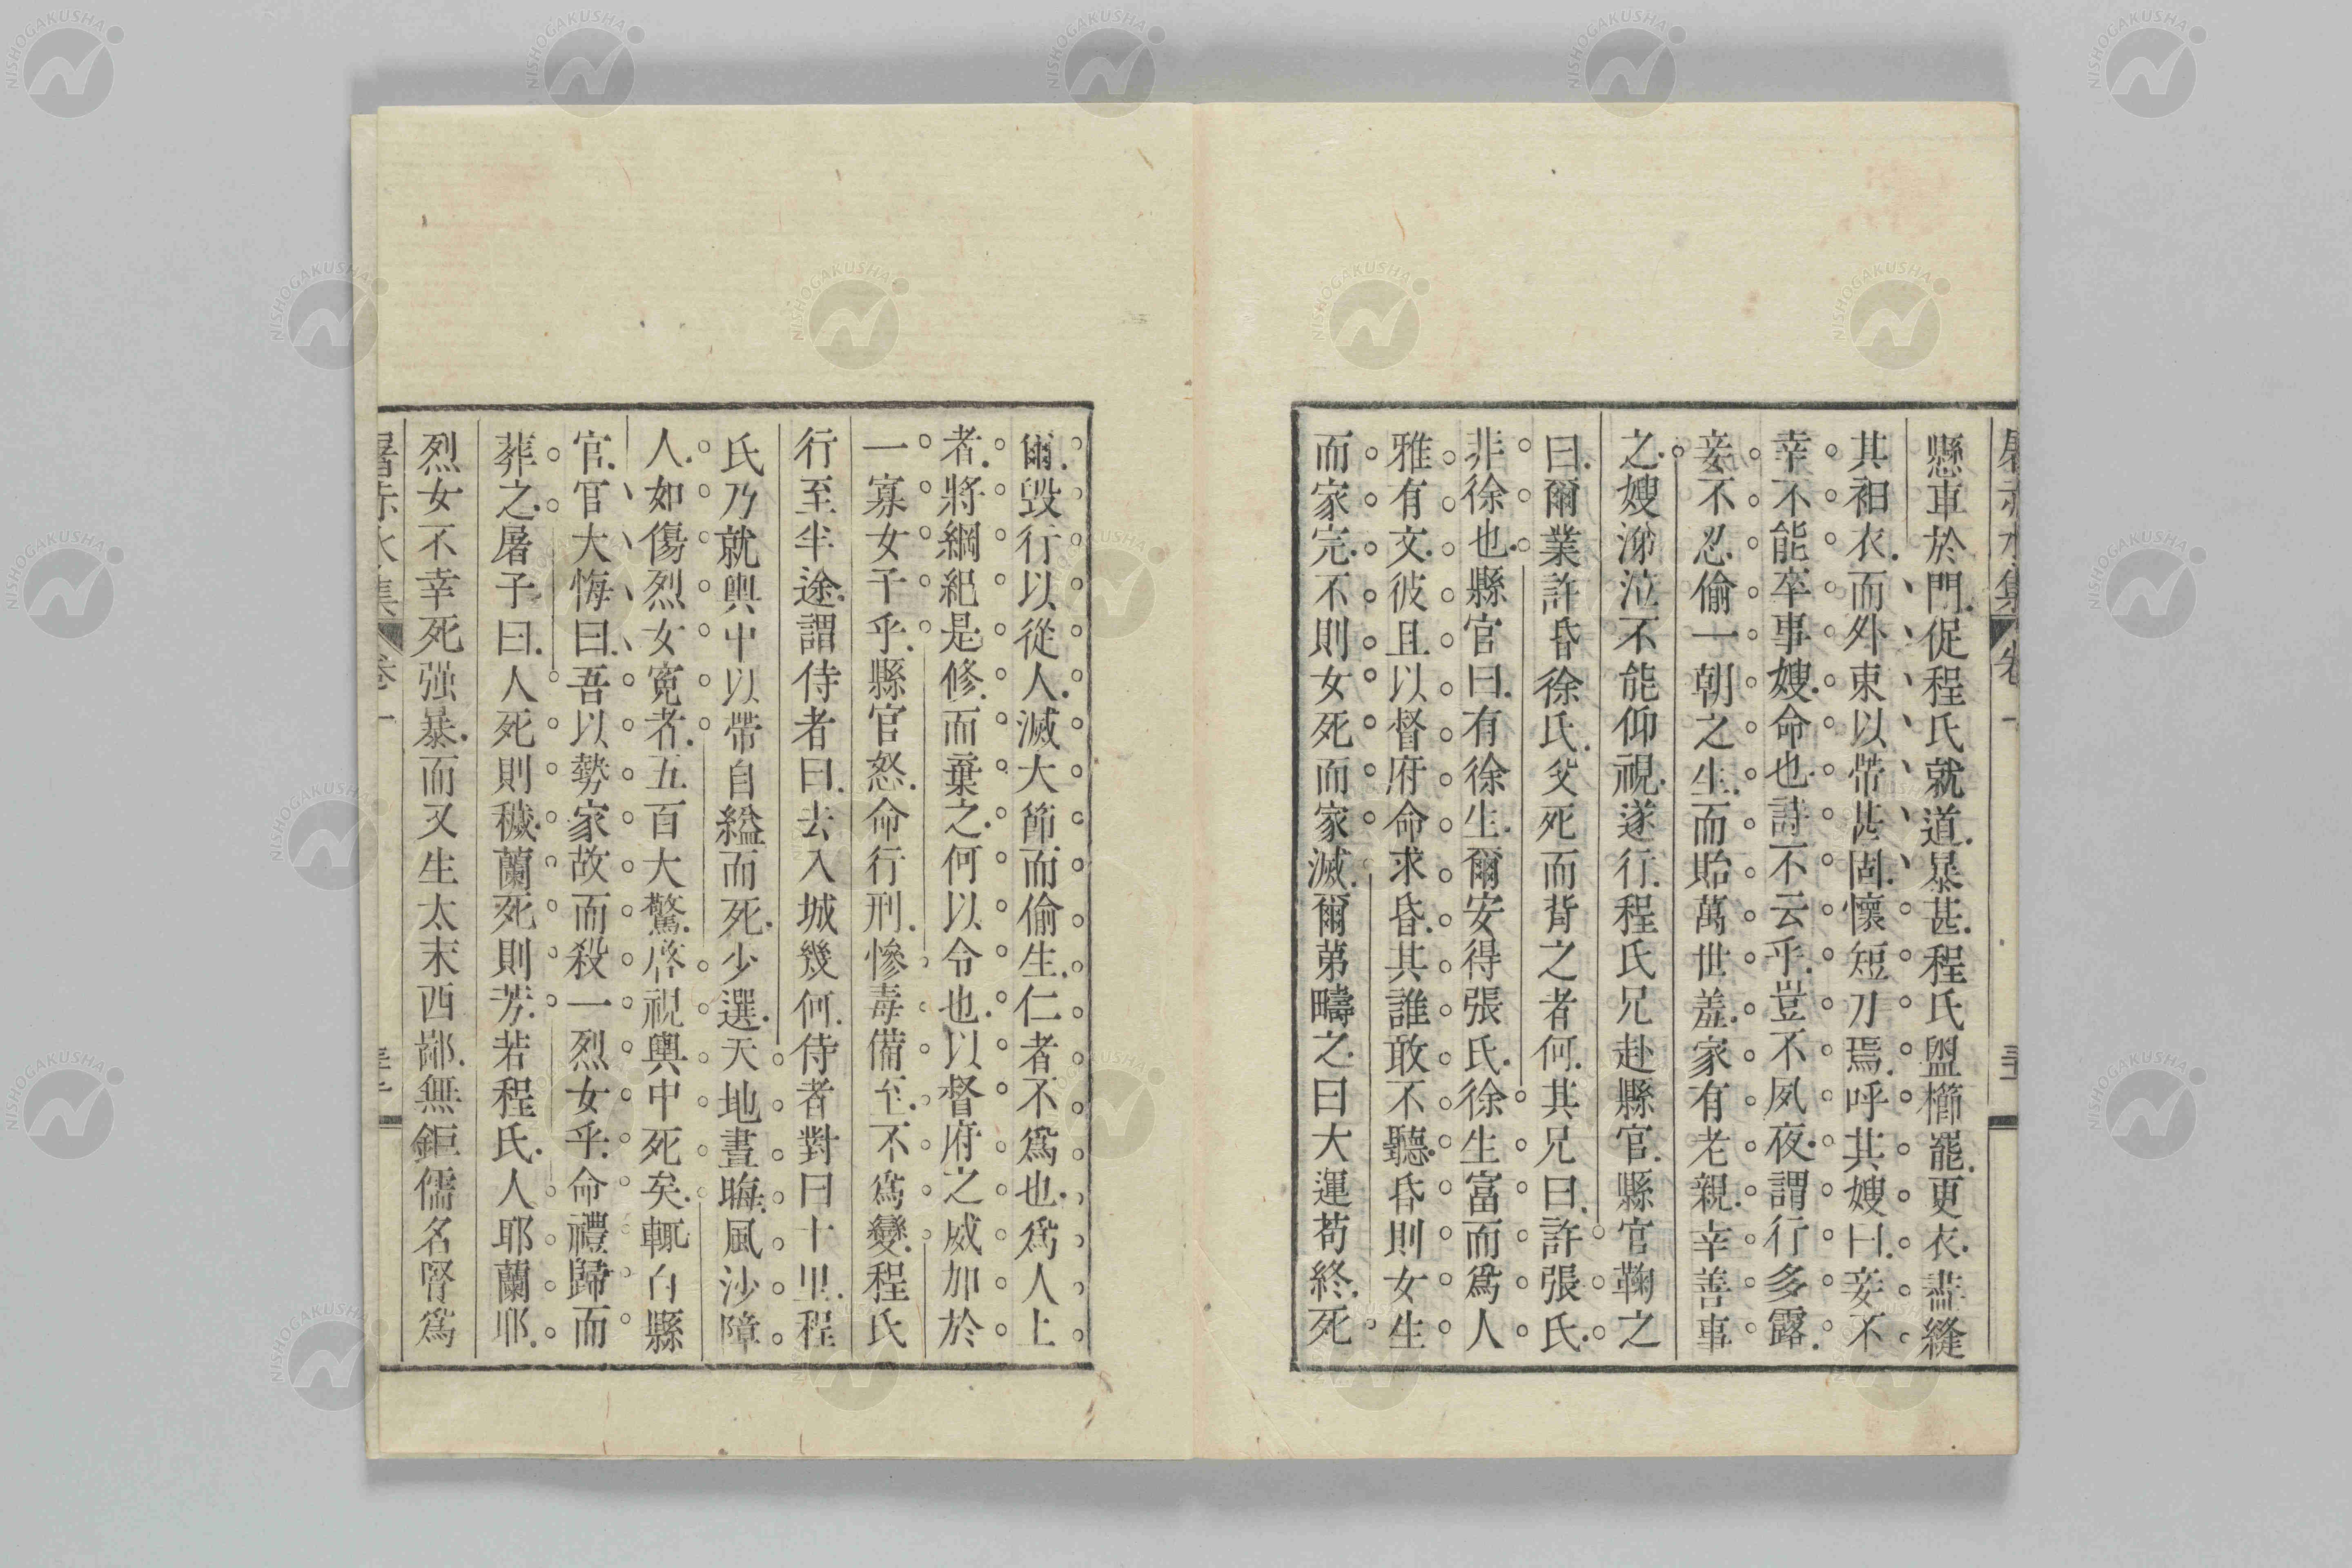 懸車於門促程氏就道暴甚程氏盥櫛罷更衣盡縫
其袒衣而外束以帶甚固懷短刀焉呼其嫂曰妾不
幸不能卒事嫂命也詩不云乎豈不夙夜謂行多露
妾不忍偷一朝之生而貽萬世羞家有老親幸善事
之嫂涕泣不能仰視遂行程氏兄赴縣官縣官鞠之
曰爾業許昏徐氏父死而背之者何其兄曰許張氏
非徐也縣官曰有徐生爾安得張氏徐生富而爲人
雅有文彼且以督府命求昏其誰敢不聽昏則女生
而家完不則女死而家滅爾苐疇之曰大運苟終死
爾毀行以從人滅大節而偷生仁者不爲也爲人上
者將綱紀是修而棄之何以令也以督府之威加於
一寡女子乎縣官怒命行刑慘毒備至不爲變程氏
行至半途謂侍者曰去入城幾何侍者對曰十里程
氏乃就輿中以帶自縊而死少選天地晝晦風沙障
人如傷烈女寃者五百大驚啓視輿中死矣輒白縣
官官大悔曰吾以勢家故而殺一烈女乎命禮歸而
葬之屠子曰人死則穢蘭死則芳若程氏人耶蘭耶
烈女不幸死强暴而又生太末西鄙無鉅儒名賢爲
屠赤水集 卷一
NISHOGAKUSHA